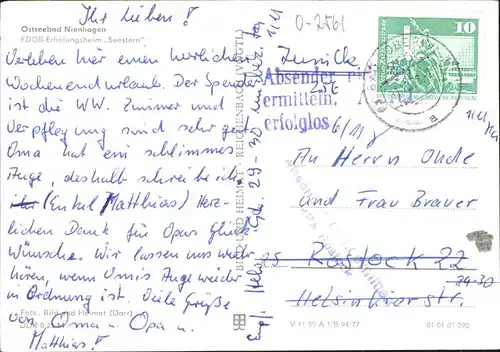 Ostseebad Nienhagen
FDGB-Erholungsheim „Seestern"
Ihr Lieben!
Verleben hier einen herrlichen
Wochenendurlaub. Der Spender
ist die WW. Zimmer und
Verpflegung sind sehr gut
Oma hat ein schlimmes
Auge, deshalb schreibe ich
(Enkel Matthias) Herz-
lichen Dank für Opas Glück
Wünsche. Wir lassen uns wieder
hören, wenn Omis Auge wieder
in Ordnung ist. Viele Grüße
von Oma u Opa u.
Matthias!
Foto: Bild und Heimat (Darr)
DDR 0,20 M
BILD UND HEIMAT REICHENBACH (VOGTL)
29-30
O-2561
Zurück
Absender
ermitteln,
erfolglos
6/11
10
An Herrn Onde
und Frau Brauer
Rostock 22
29-30
Helsinkier str.
V 11 50 A 1/B 94/77
01 01 01 290